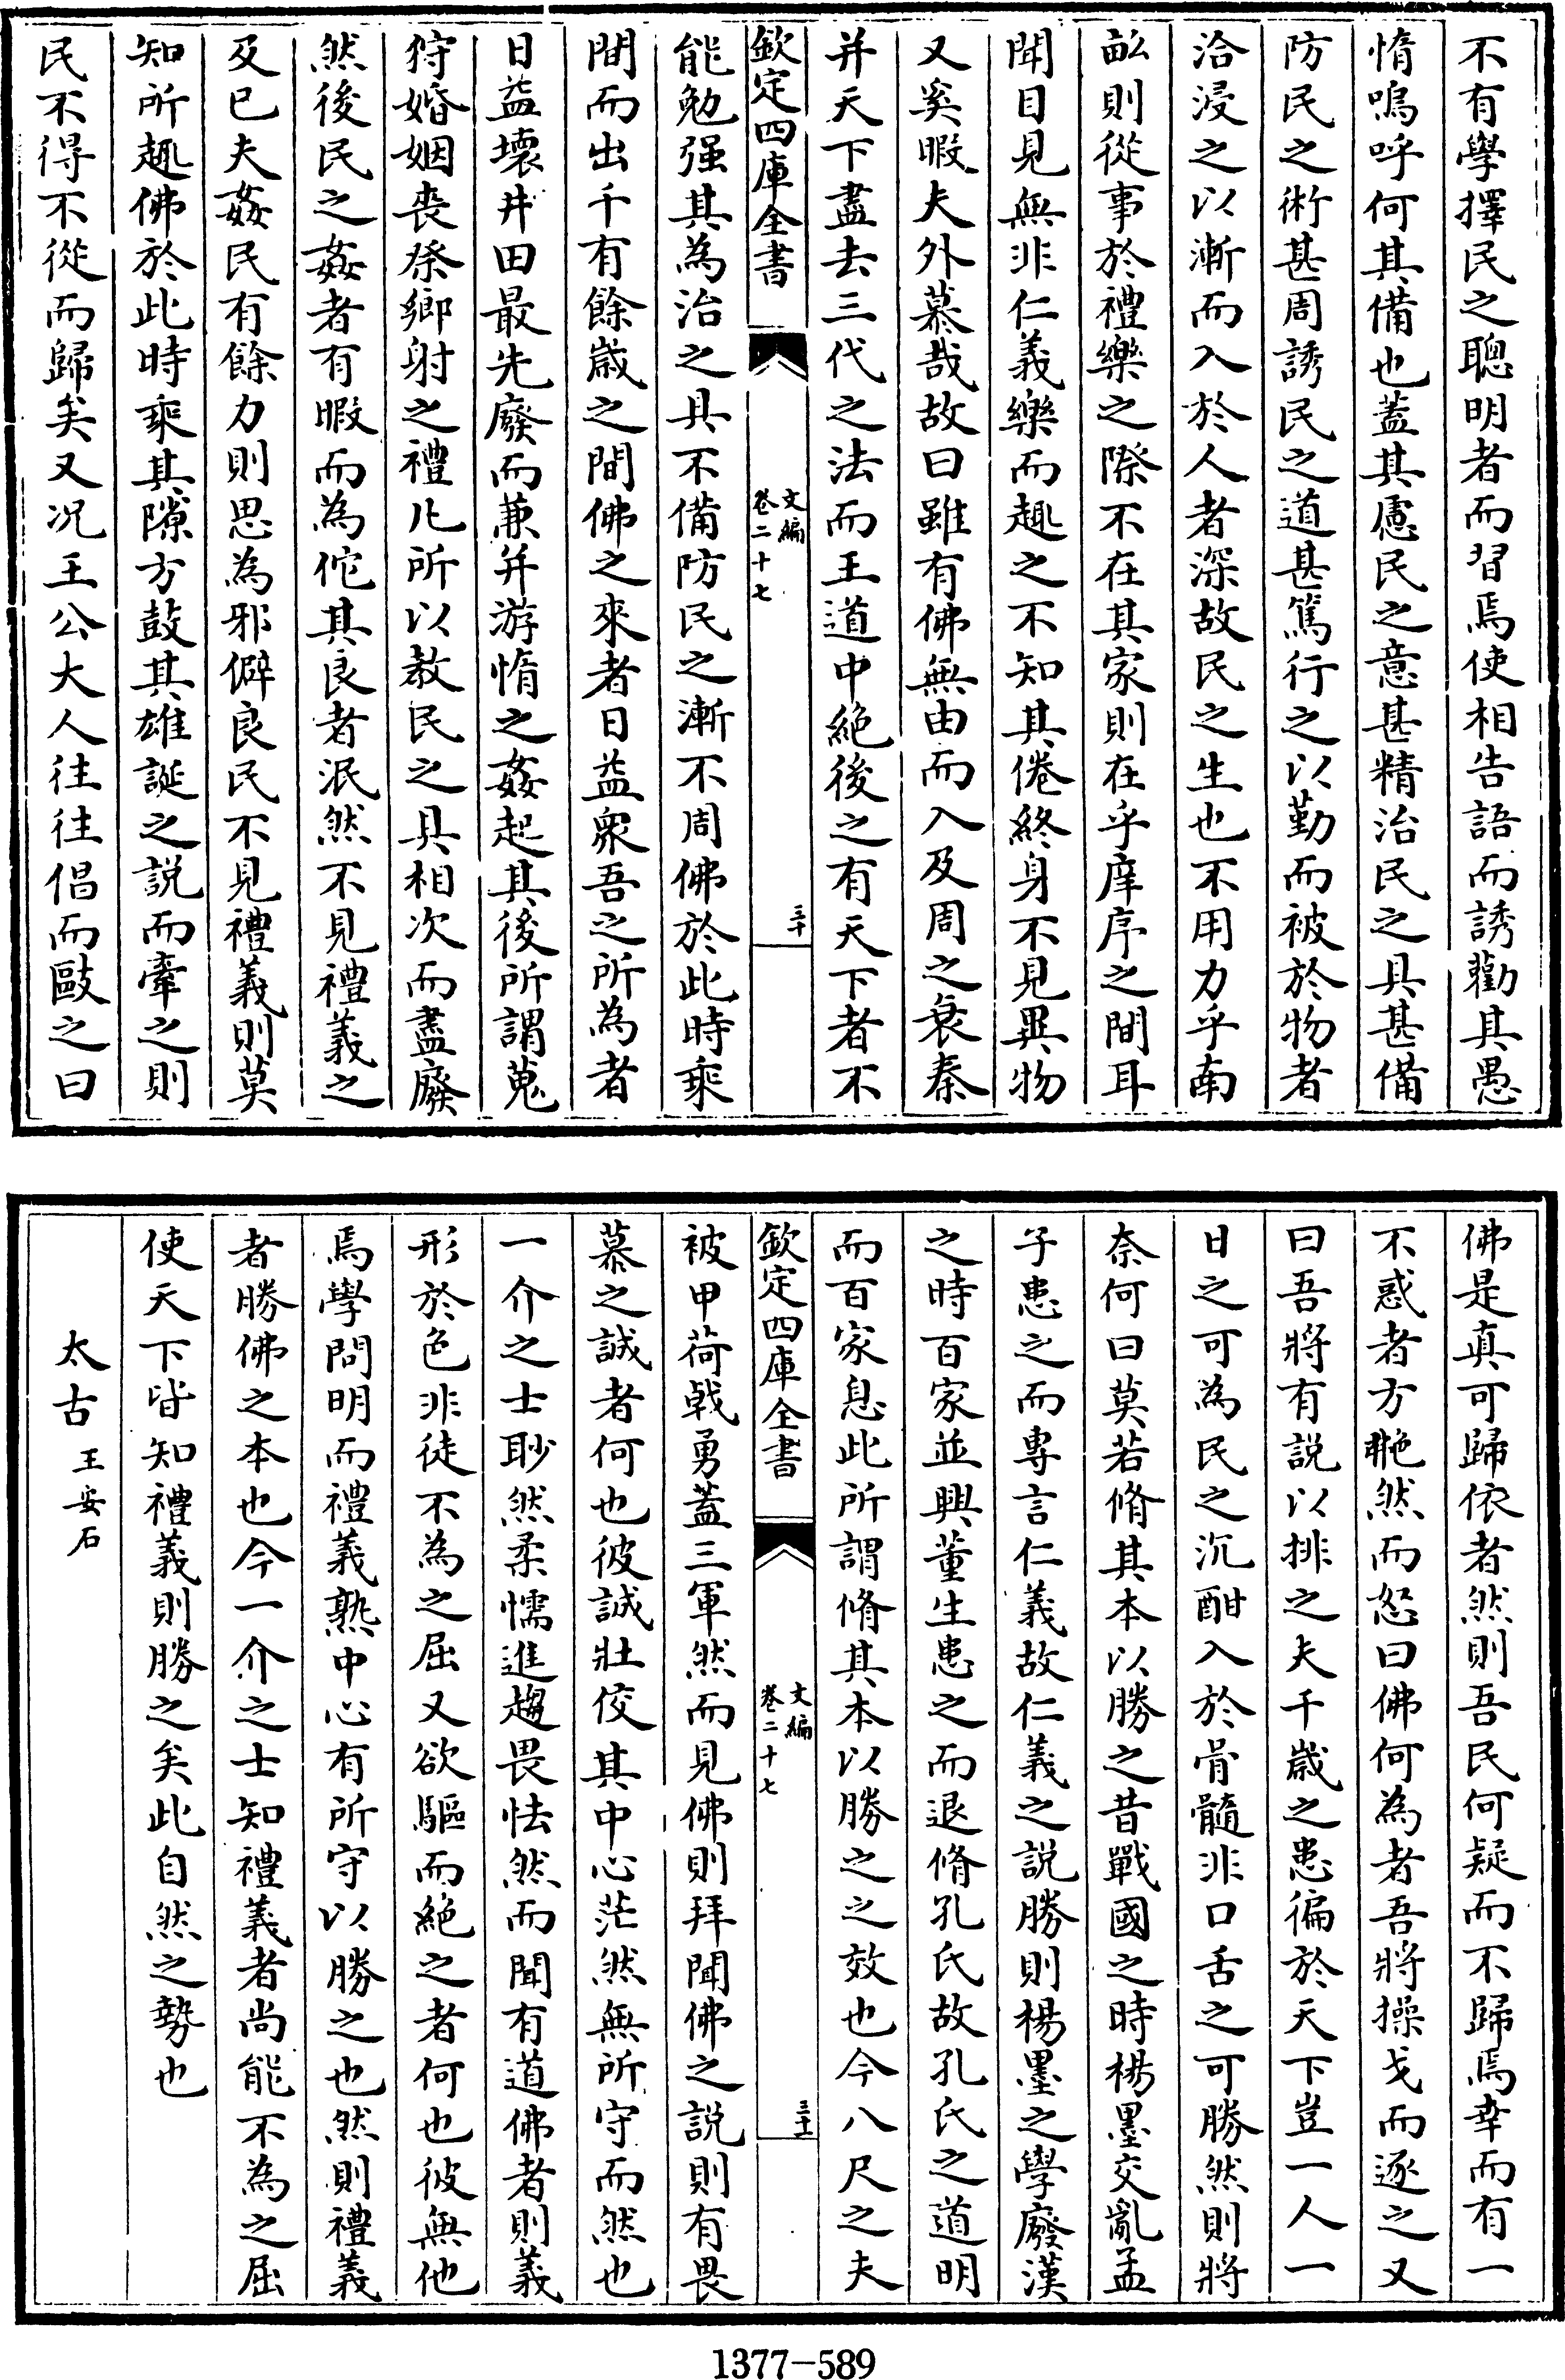 不有學擇民之聰明者而習焉使相告語而誘勸其愚
惰嗚呼何其備也蓋其慮民之意甚精治民之具甚備
防民之術甚周誘民之道甚篤行之以勤而被於物者
洽浸之以漸而入於人者深故民之生也不用力乎南
畝則從事於禮樂之際不在其家則在乎庠序之間耳
聞目見無非仁義樂而趣之不知其倦終身不見異物
又奚暇夫外慕哉故曰雖有佛無由而入及周之衰秦
并天下盡去三代之法而王道中絶後之有天下者不
欽定四庫全書
文編
卷二十七
三十
能勉强其為治之具不備防民之漸不周佛於此時乘
間而出千有餘嵗之間佛之來者日益衆吾之所為者
日益壞井田最先廢而兼并游惰之姦起其後所謂蒐
狩婚姻喪祭鄉射之禮凡所以教民之具相次而盡廢
然後民之姦者有暇而為佗其良者泯然不見禮義之
及已夫姦民有餘力則思為邪僻良民不見禮義則莫
知所趣佛於此時乘其隙方鼓其雄誕之説而牽之則
民不得不從而歸矣又况王公大人往往倡而敺之曰
佛是真可歸依者然則吾民何疑而不歸焉幸而有一
不惑者方艴然而怒曰佛何為者吾將操戈而逐之又
曰吾將有説以排之夫千嵗之患徧於天下豈一人一
日之可為民之沉酣入於骨髓非口舌之可勝然則將
奈何曰莫若脩其本以勝之昔戰國之時楊墨交亂孟
子患之而專言仁義故仁義之説勝則楊墨之學廢漢
之時百家並興董生患之而退脩孔氏故孔氏之道明
而百家息此所謂脩其本以勝之之效也今八尺之夫
欽定四庫全書
文編
卷二十七
三十一
被甲荷戟勇蓋三軍然而見佛則拜聞佛之説則有畏
慕之誠者何也彼誠壯佼其中心茫然無所守而然也
一介之士眇然柔懦進趨畏怯然而聞有道佛者則義
形於色非徒不為之屈又欲驅而絶之者何也彼無他
焉學問明而禮義熟中心有所守以勝之也然則禮義
者勝佛之本也今一介之士知禮義者尚能不為之屈
使天下皆知禮義則勝之矣此自然之勢也
太古 王安石
1377-589